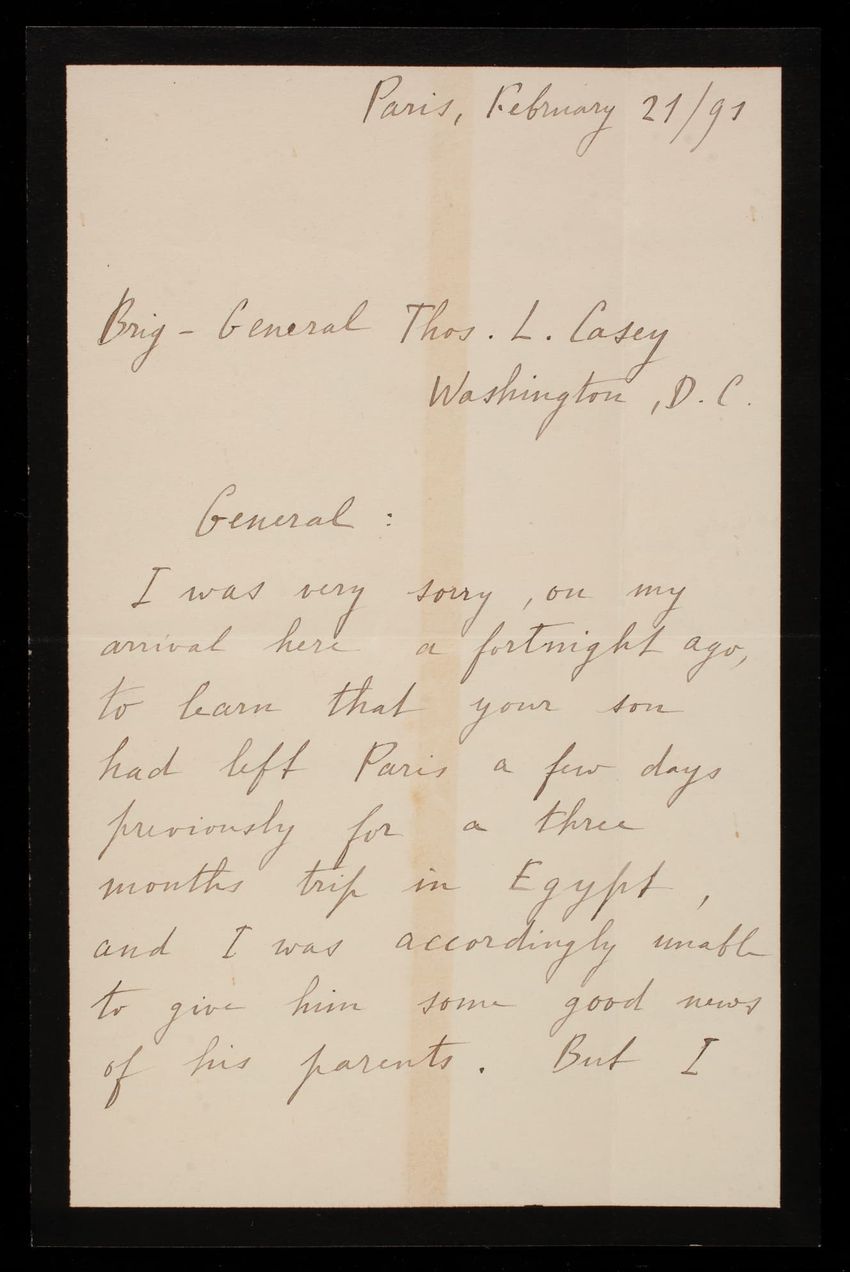 Paris, February 21/91
Brig - General Thos. L. Casey
Washington, D. C.
General :
I was very sorry, on my
arrival here a fortnight ago,
to learn that your son
had left Paris a few days
previously for a three
months trip in Egypt,
and I was accordingly unable
to give him some good news
of his parents. But I